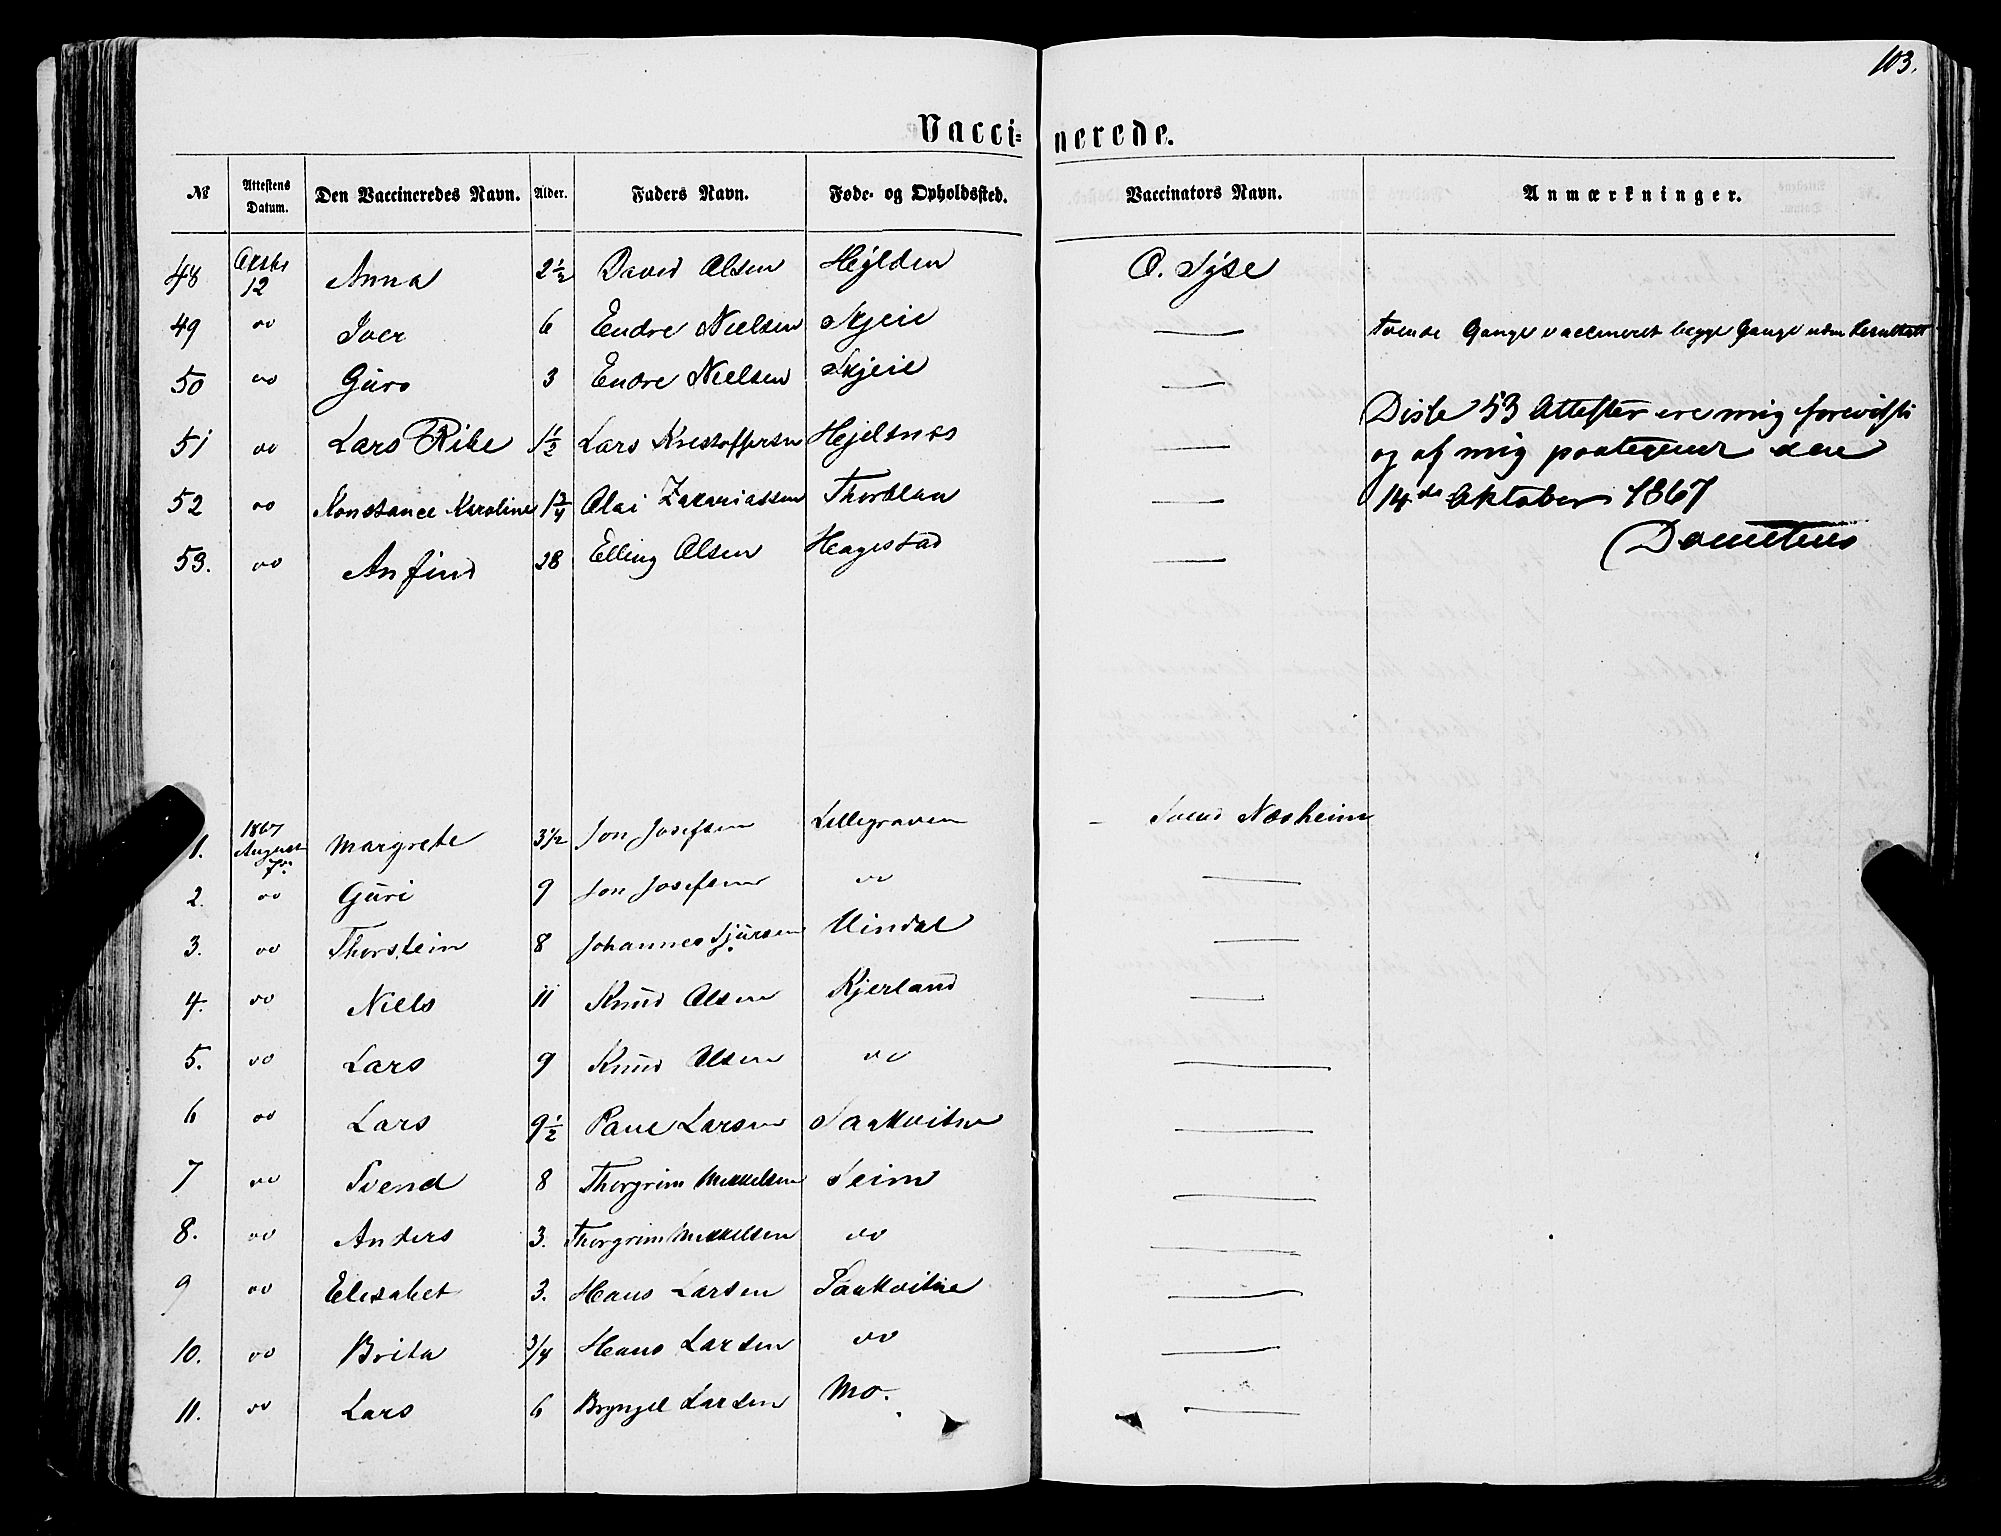 103.
Vaccinerede.
№ Attestens Datum. Den Vaccineredes Navn. Alder. Faders Navn. Føde- og Opholdssted. Vaccinators Navn. Anmærkninger.
48 Oktbr 12 Anna 2½ David Olsen Hylden O. Syse
49 " Iver 6 Endre Nielsen Skjeie — tvende Gange vaccineret begge Gange uden Resultatt
50 " Guro 3 Endre Nielsen Skjeie —
Disse 53 Attester ere mig foreviste
51 " Lars Ribe 1½ Lars Kristoffersen Hjeltnes —
og af mig paategnet den
52 " Konstance Karoline 1¾ Olai Zakariassen Thorblaa —
14de Oktober 1867
53. " Anfind 28 Elling Olsen Hagestad —
1. 1867 August 7de Margrete 3½ Jon Josefsen Lillegraven - Svend Næsheim
2. " Guri 9 Jon Josefsen " —
3. " Thorstein 8 Johannes Sjursen Vindal —
4. " Niels 11 Knud Olsen Kjerland —
5. " Lars 9 Knud Olsen " —
6 " Lars 9½ Paul Larsen Saakvitne —
7 " Svend 8 Thorgrim Mikkelsen Seim —
8. " Anders 3. Thorgrim Mikkelsen " —
9 " Elisabet 3. Hans Larsen Saakvitne —
10. " Brita ¾ Hans Larsen " —
11. " Lars 6 Bryngel Larsen Mo. —